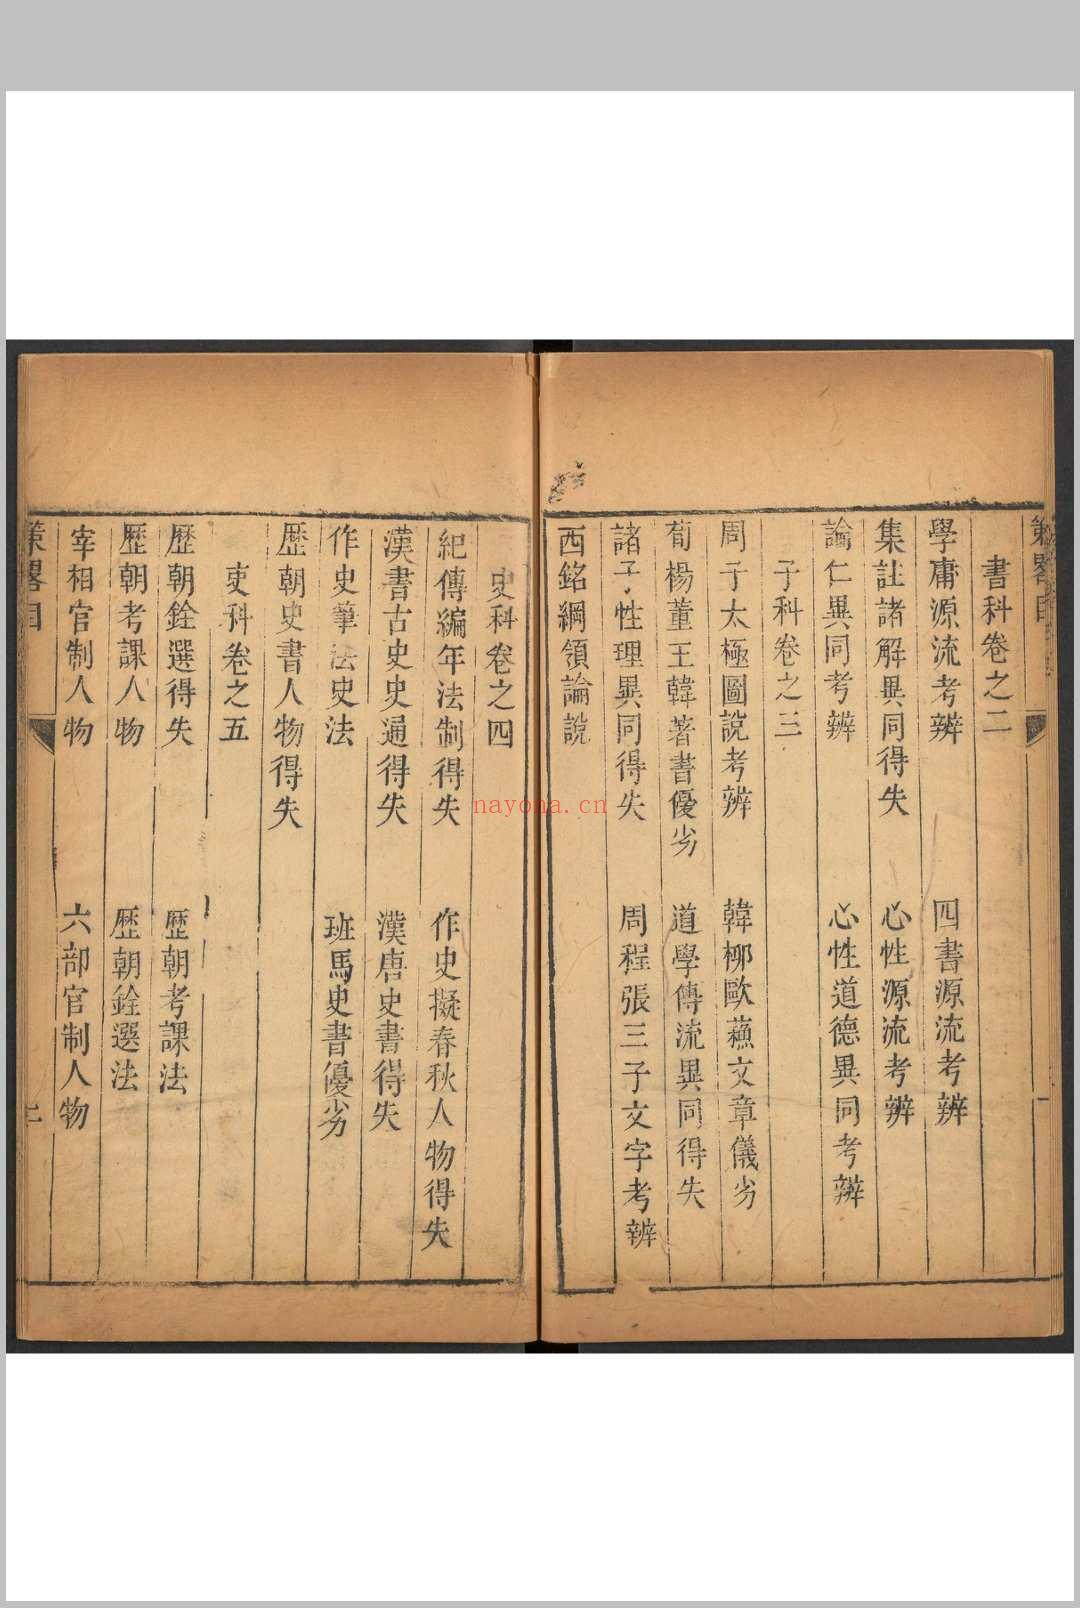 書科卷之二
學庸源流考辨 四書源流考辨
集註諸解異同得失 心性源流考辨
論仁異同考辨 心性道德異同考辨
子科卷之三
周子太極圖說考辨 韓柳歐蘓文章儀劣
荀楊董王韓著書優劣 道學傳流異同得失
諸子性理異同得失 周程張三子文字考辨
西銘綱領論說
史科卷之四
紀傳編年法制得失 作史擬春秋人物得失
漢書古史史通得失 漢唐史書得失
作史筆法史法 班馬史書優劣
歷朝史書人物得失
吏科卷之五
歷朝銓選得失 歷朝考課法
歷朝考課人物 歷朝銓選法
宰相官制人物 六部官制人物
策畧目
nayona.cn